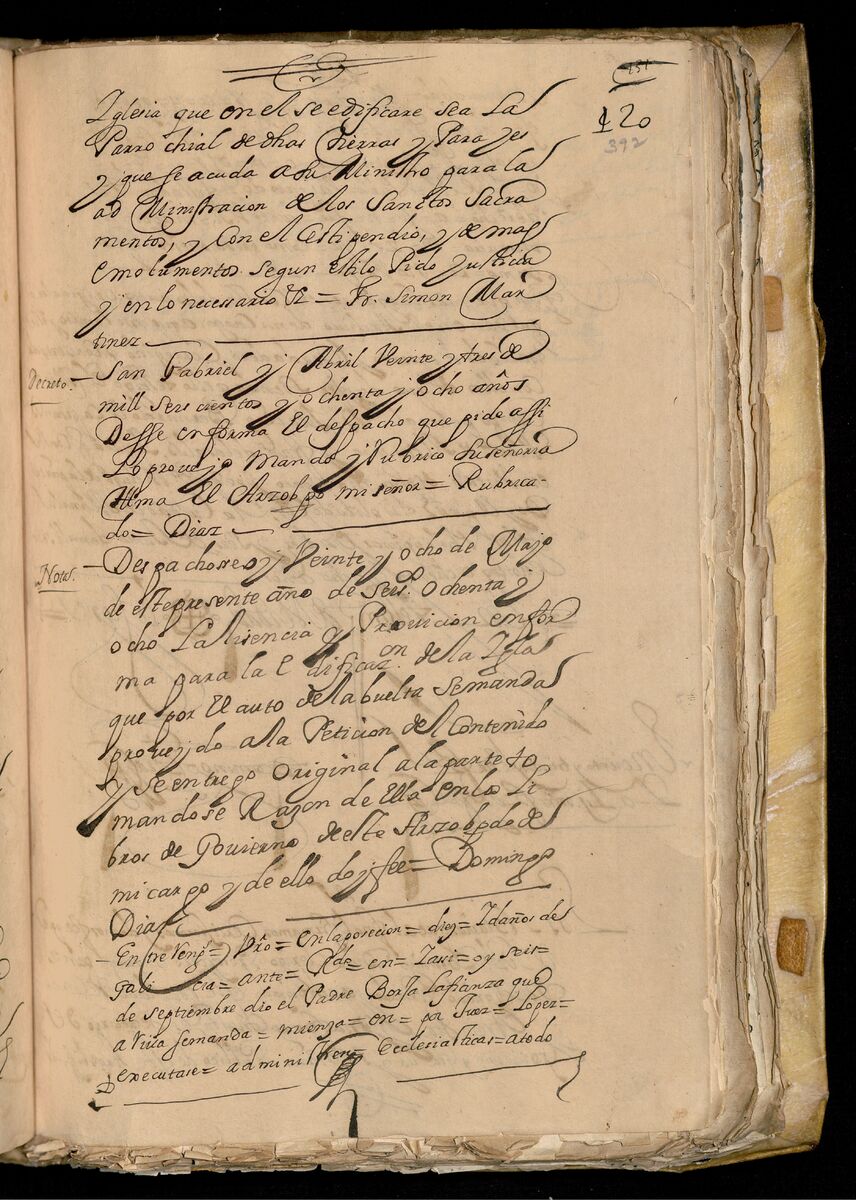 151
120
392
Iglesia que en el se edificare sea La
Parrochial de dhas Tierras y Parajes
y que se acuda a su Ministro para la
ad Ministracion de los Sanctos Sacra
mentos, y Con el Estipendio, y de mas
emolumentos segun estilo Pido Justicia
y en lo necessario &c = Fr. Simon Mar
tinez
Decreto. San Gabriel y Abril Veinte y tres de
mill seis cientos y ochenta y ocho años
Desse en forma El despacho que pide assi
Lo proveyo Mando y Rubrico Su señoria
Illma El Arzobpo mi señor = Rubrica-
do = Diaz
Nota. Despachosse oy Veinte y ocho de Mayo
de este presente año de Seiso. Ochenta y
ocho La lisencia y Provicion en for
ma para la Edificazon. de la Iglas
que por El auto de la buelta Se manda
proveydo a la Peticion del Contenido
y Se entrego Original a la parte to
mandose Razon de Ella en los Li
bros de Govierno de este Arzobpdo de
mi cargo y de ello doy fee = Domingo
Diaz
Entre Rengs = Pro = en la posecion = diez = Idaños de
Gali cia = ante = Rdz = en = Zassi = oy seis =
de septiembre dio el Padre Borja La fianza que
a Viva se manda = mienza = on = por Juez = Lopez =
executase = administren = ecclesiasticas = atodo